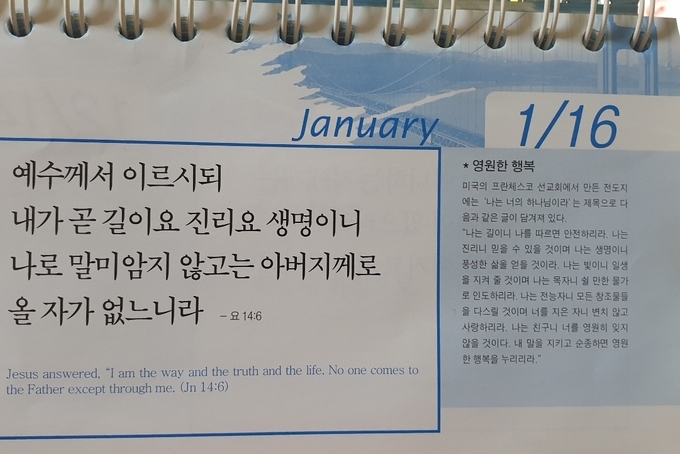 January
1/16
예수께서 이르시되
내가 곧 길이요 진리요 생명이니
나로 말미암지 않고는 아버지께로
올 자가 없느니라 – 요 14:6
Jesus answered, “I am the way and the truth and the life. No one comes to
the Father except through me. (Jn 14:6)
* 영원한 행복
미국의 프란체스코 선교회에서 만든 전도지
에는 ‘나는 너의 하나님이라’는 제목으로 다
음과 같은 글이 담겨져 있다.
“나는 길이니 나를 따르면 안전하리라. 나는
진리니 믿을 수 있을 것이며 나는 생명이니
풍성한 삶을 얻을 것이라. 나는 빛이니 일생
을 지켜 줄 것이며 나는 목자니 쉴 만한 물가
로 인도하리라. 나는 전능자니 모든 창조물들
을 다스릴 것이며 너를 지은 자니 변치 않고
사랑하리라. 나는 친구니 너를 영원히 잊지
않을 것이다. 내 말을 지키고 순종하면 영원
한 행복을 누리리라.”